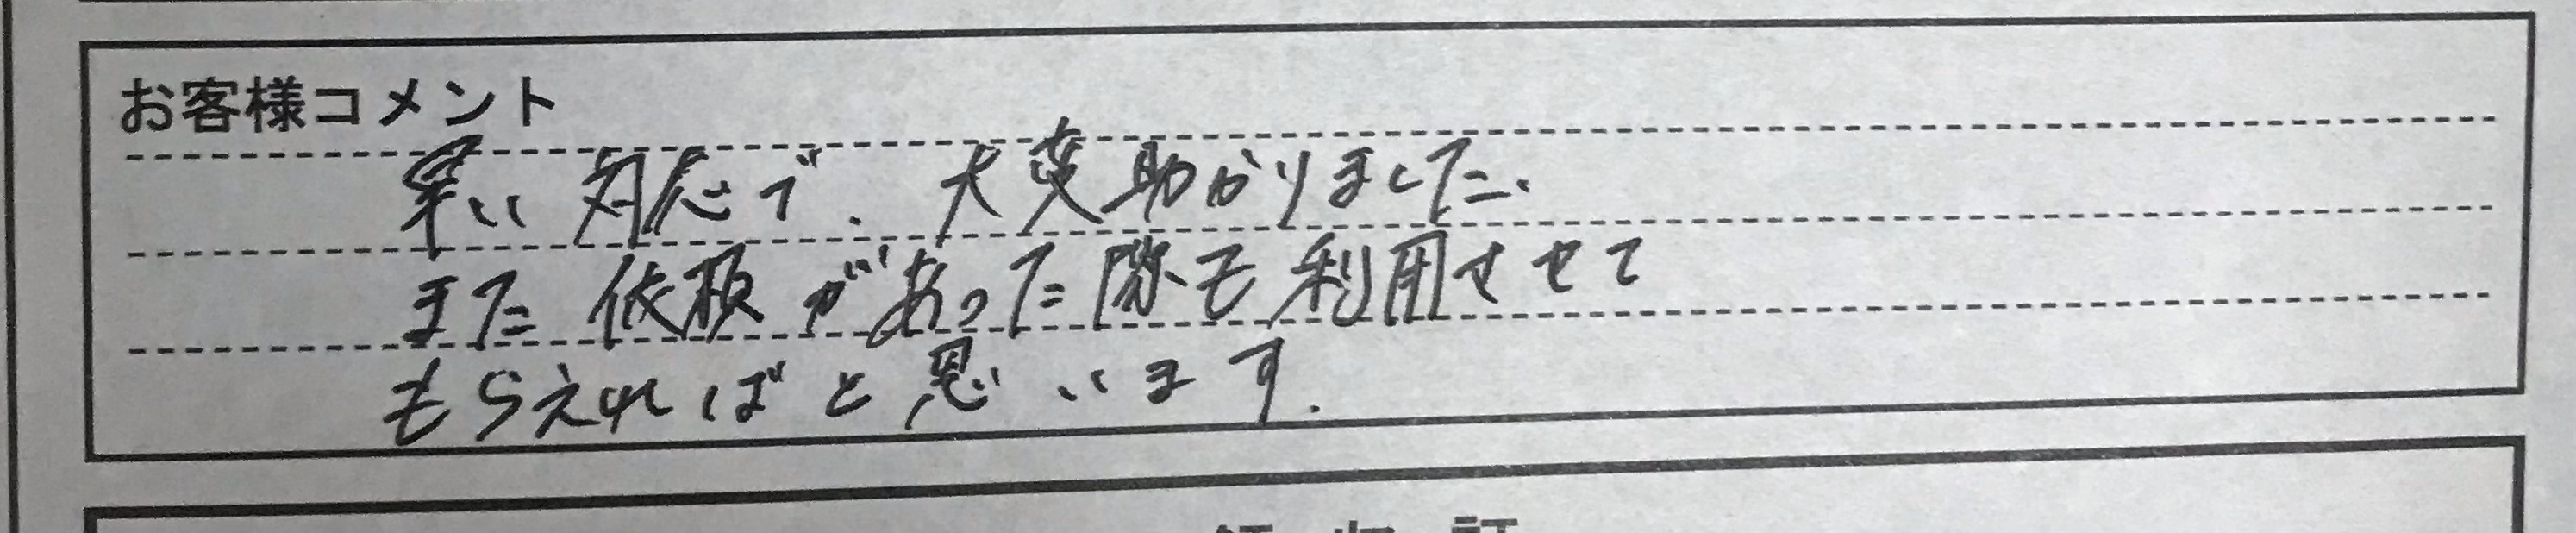 お客様コメント
早い対応で、大変助かりました、
また依頼があった際も利用させて
もらえればと思います.
領収証